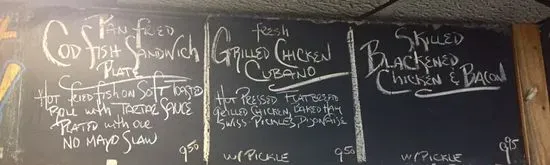 Pan Fried
Cod Fish Sandwich
Plate
Hot Fried Fish on Soft Toasted
Roll with Tartar Sauce
Plated with our
No Mayo Slaw
9.50
Fresh
Grilled Chicken
Cubano
Hot Pressed Flatbread
Grilled Chicken, Baked Ham
Swiss, Pickles, Dijonaise
w/ Pickle
9.50
Skilled
Blackened
Chicken & Bacon
w/ Pickle
9.95